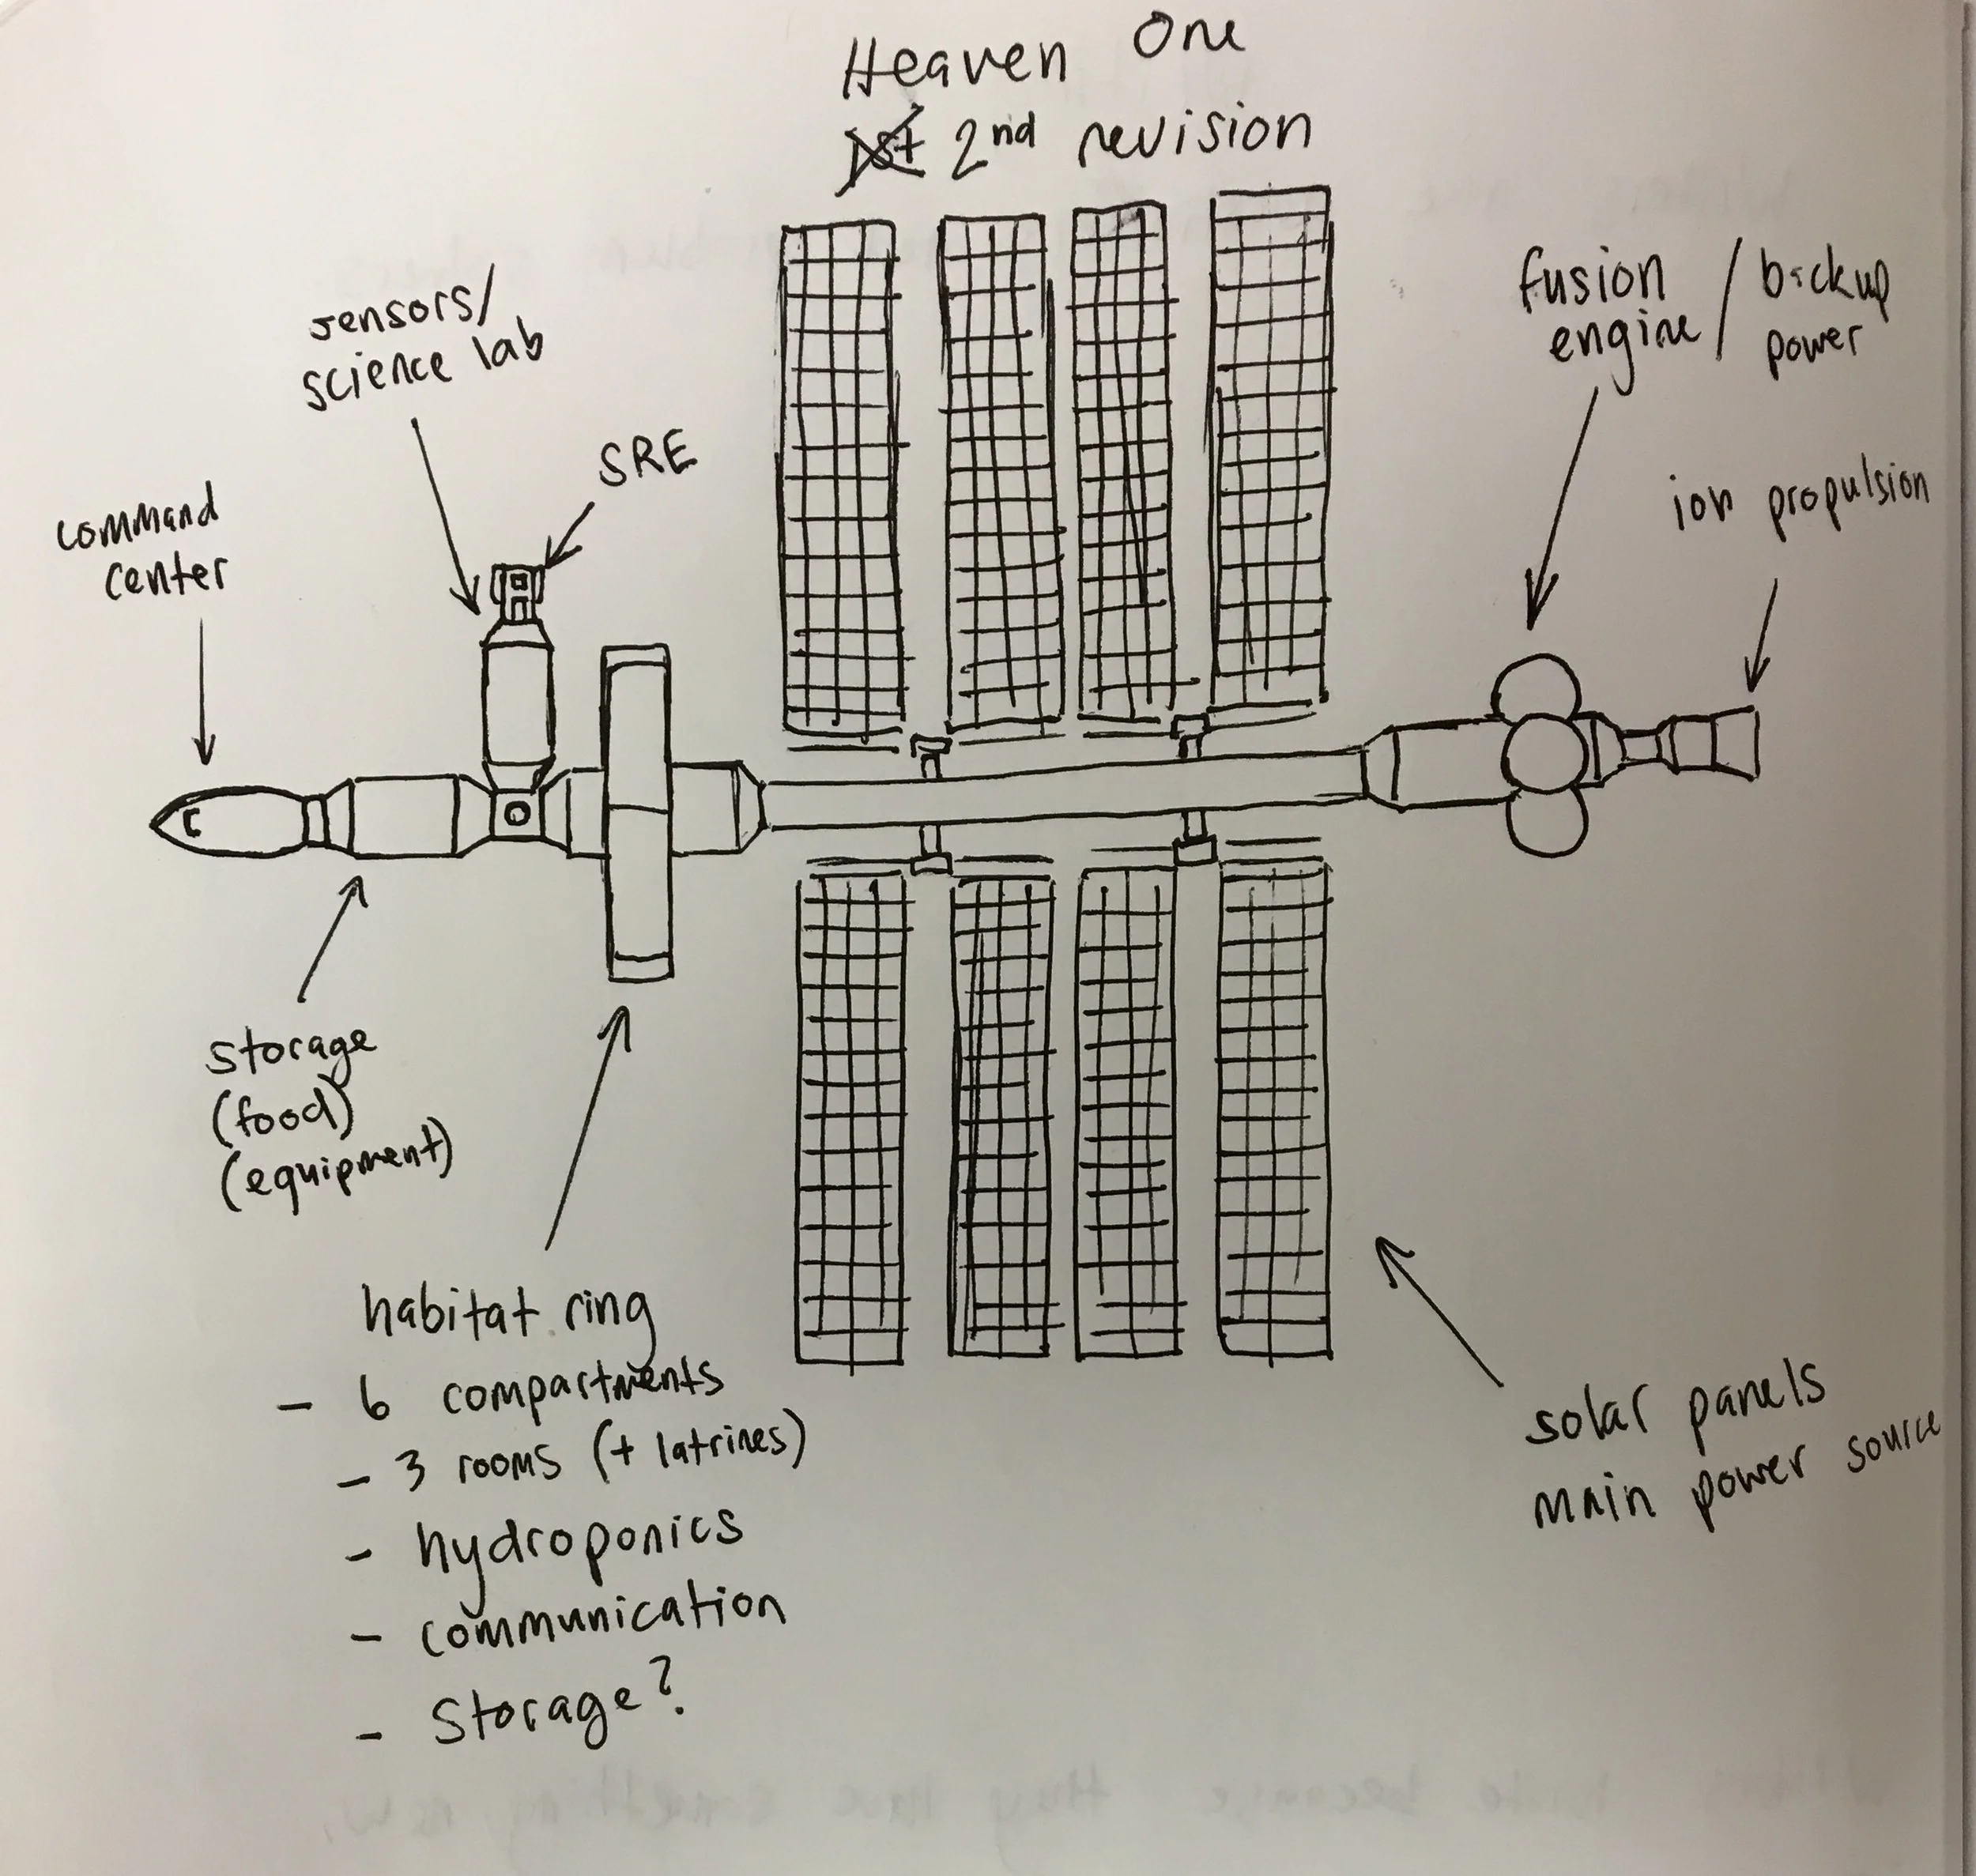 Heaven One
1st 2nd revision
sensors/
science lab
SRE
command
center
fusion
engine /
backup
power
ion propulsion
storage
(food)
(equipment)
habitat ring
- 6 compartments
- 3 rooms (+ latrines)
- hydroponics
- communication
- Storage?
solar panels
main power source